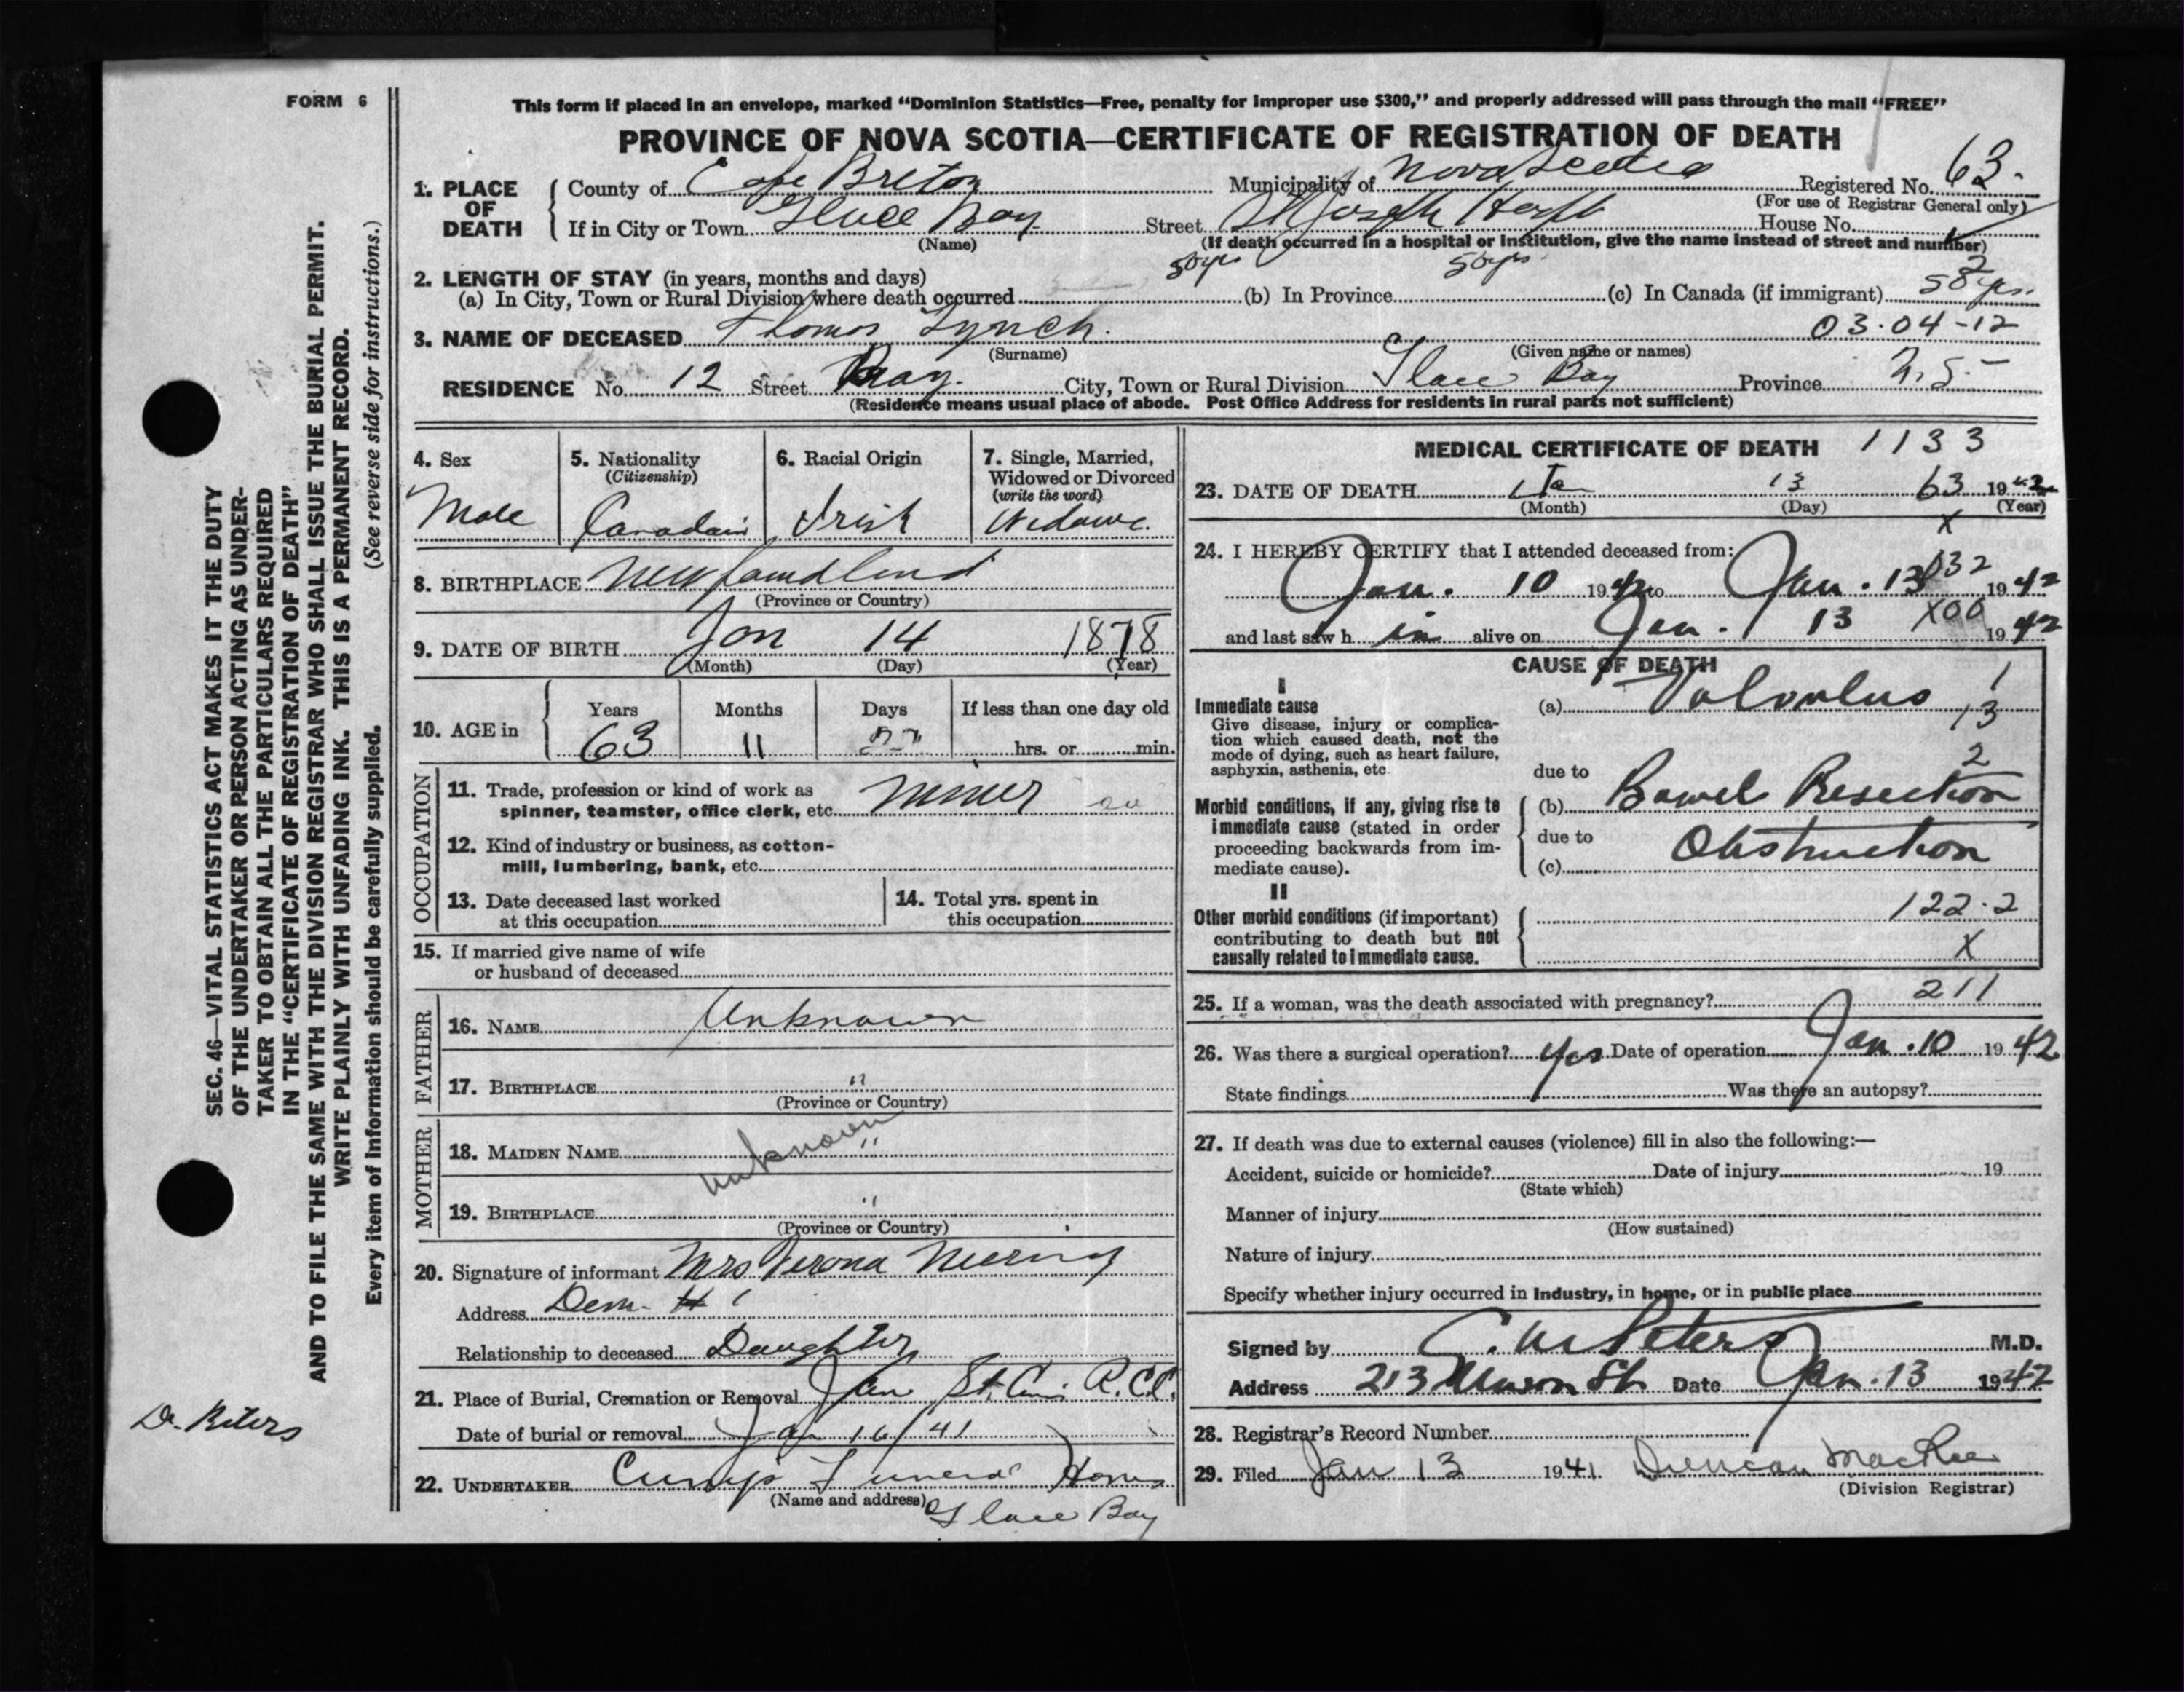 FORM 6
This form if placed in an envelope, marked “Dominion Statistics—Free, penalty for improper use $300,” and properly addressed will pass through the mail “FREE”
PROVINCE OF NOVA SCOTIA—CERTIFICATE OF REGISTRATION OF DEATH
1. PLACE OF DEATH County of Cape Breton Municipality of Nova Scotia Registered No. 63.
(For use of Registrar General only)
If in City or Town Glace Bay Street St Joseph House No.
(Name) (If death occurred in a hospital or institution, give the name instead of street and number)
2. LENGTH OF STAY (in years, months and days)
(a) In City, Town or Rural Division where death occurred 50 yrs (b) In Province 50 yrs (c) In Canada (if immigrant) 50 yrs. 2
3. NAME OF DECEASED Thomas Lynch. 03.04-12
(Surname) (Given name or names)
RESIDENCE No. 12 Street City, Town or Rural Division Glace Bay Province N.S.
(Residence means usual place of abode. Post Office Address for residents in rural parts not sufficient)
4. Sex Male
5. Nationality (Citizenship) Canadain
6. Racial Origin Irish
7. Single, Married, Widowed or Divorced (write the word)
8. BIRTHPLACE Newfoundland
(Province or Country)
9. DATE OF BIRTH Jan 14 1878
(Month) (Day) (Year)
10. AGE in Years 63 Months 11 Days If less than one day old hrs. or min.
OCCUPATION
11. Trade, profession or kind of work as spinner, teamster, office clerk, etc. Miner
12. Kind of industry or business, as cotton-mill, lumbering, bank, etc.
13. Date deceased last worked at this occupation
14. Total yrs. spent in this occupation
15. If married give name of wife or husband of deceased
FATHER
16. NAME Unknown
17. BIRTHPLACE "
(Province or Country)
MOTHER
18. MAIDEN NAME " unknown
19. BIRTHPLACE "
(Province or Country)
20. Signature of informant Mrs Verona
Address Dom. # 1
Relationship to deceased Daughter
21. Place of Burial, Cremation or Removal Jan St. R.C.
Date of burial or removal Jan 16/41
22. UNDERTAKER Funeral Home
(Name and address) Glace Bay
MEDICAL CERTIFICATE OF DEATH 1133
23. DATE OF DEATH Jan 13 63 1942
(Month) (Day) (Year)
X
24. I HEREBY CERTIFY that I attended deceased from:
Jan. 10 1942 to Jan. 13 1942
and last saw h im alive on Jan. 13 X00 1942
CAUSE OF DEATH
I
Immediate cause
Give disease, injury or complication which caused death, not the mode of dying, such as heart failure, asphyxia, asthenia, etc.
(a) Volvulus 1
13
2
due to
Morbid conditions, if any, giving rise to immediate cause (stated in order proceeding backwards from immediate cause).
(b) Bowel Resection
due to
(c) Obstruction
II
Other morbid conditions (if important) contributing to death but not causally related to immediate cause.
122.2
X
25. If a woman, was the death associated with pregnancy? 211
26. Was there a surgical operation? Yes Date of operation Jan. 10 1942
State findings Was there an autopsy?
27. If death was due to external causes (violence) fill in also the following:—
Accident, suicide or homicide? Date of injury 19
(State which)
Manner of injury
(How sustained)
Nature of injury
Specify whether injury occurred in industry, in home, or in public place
Signed by C. M Peters M.D.
Address 213 Union St. Date Jan. 13 1942
28. Registrar's Record Number
29. Filed Jan 13 1941 Duncan MacRae
(Division Registrar)
SEC. 46—VITAL STATISTICS ACT MAKES IT THE DUTY
OF THE UNDERTAKER OR PERSON ACTING AS UNDER-
TAKER TO OBTAIN ALL THE PARTICULARS REQUIRED
IN THE “CERTIFICATE OF REGISTRATION OF DEATH”
AND TO FILE THE SAME WITH THE DIVISION REGISTRAR WHO SHALL ISSUE THE BURIAL PERMIT.
WRITE PLAINLY WITH UNFADING INK. THIS IS A PERMANENT RECORD.
Every item of information should be carefully supplied. (See reverse side for instructions.)
Dr. Peters